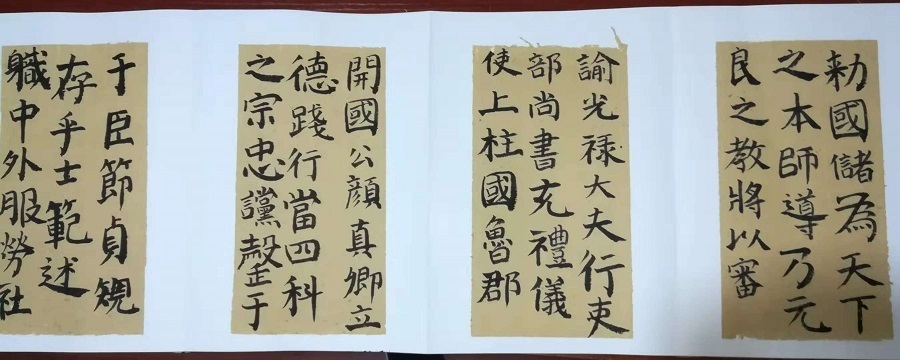 勅國儲為天下
之本師導乃元
良之教將以審
諭光禄大夫行吏
部尚書充禮儀
使上柱國魯郡
開國公顔真卿立
德踐行當四科
之宗忠讜罄于
于臣節貞規
存乎士範述
軄中外服勞社